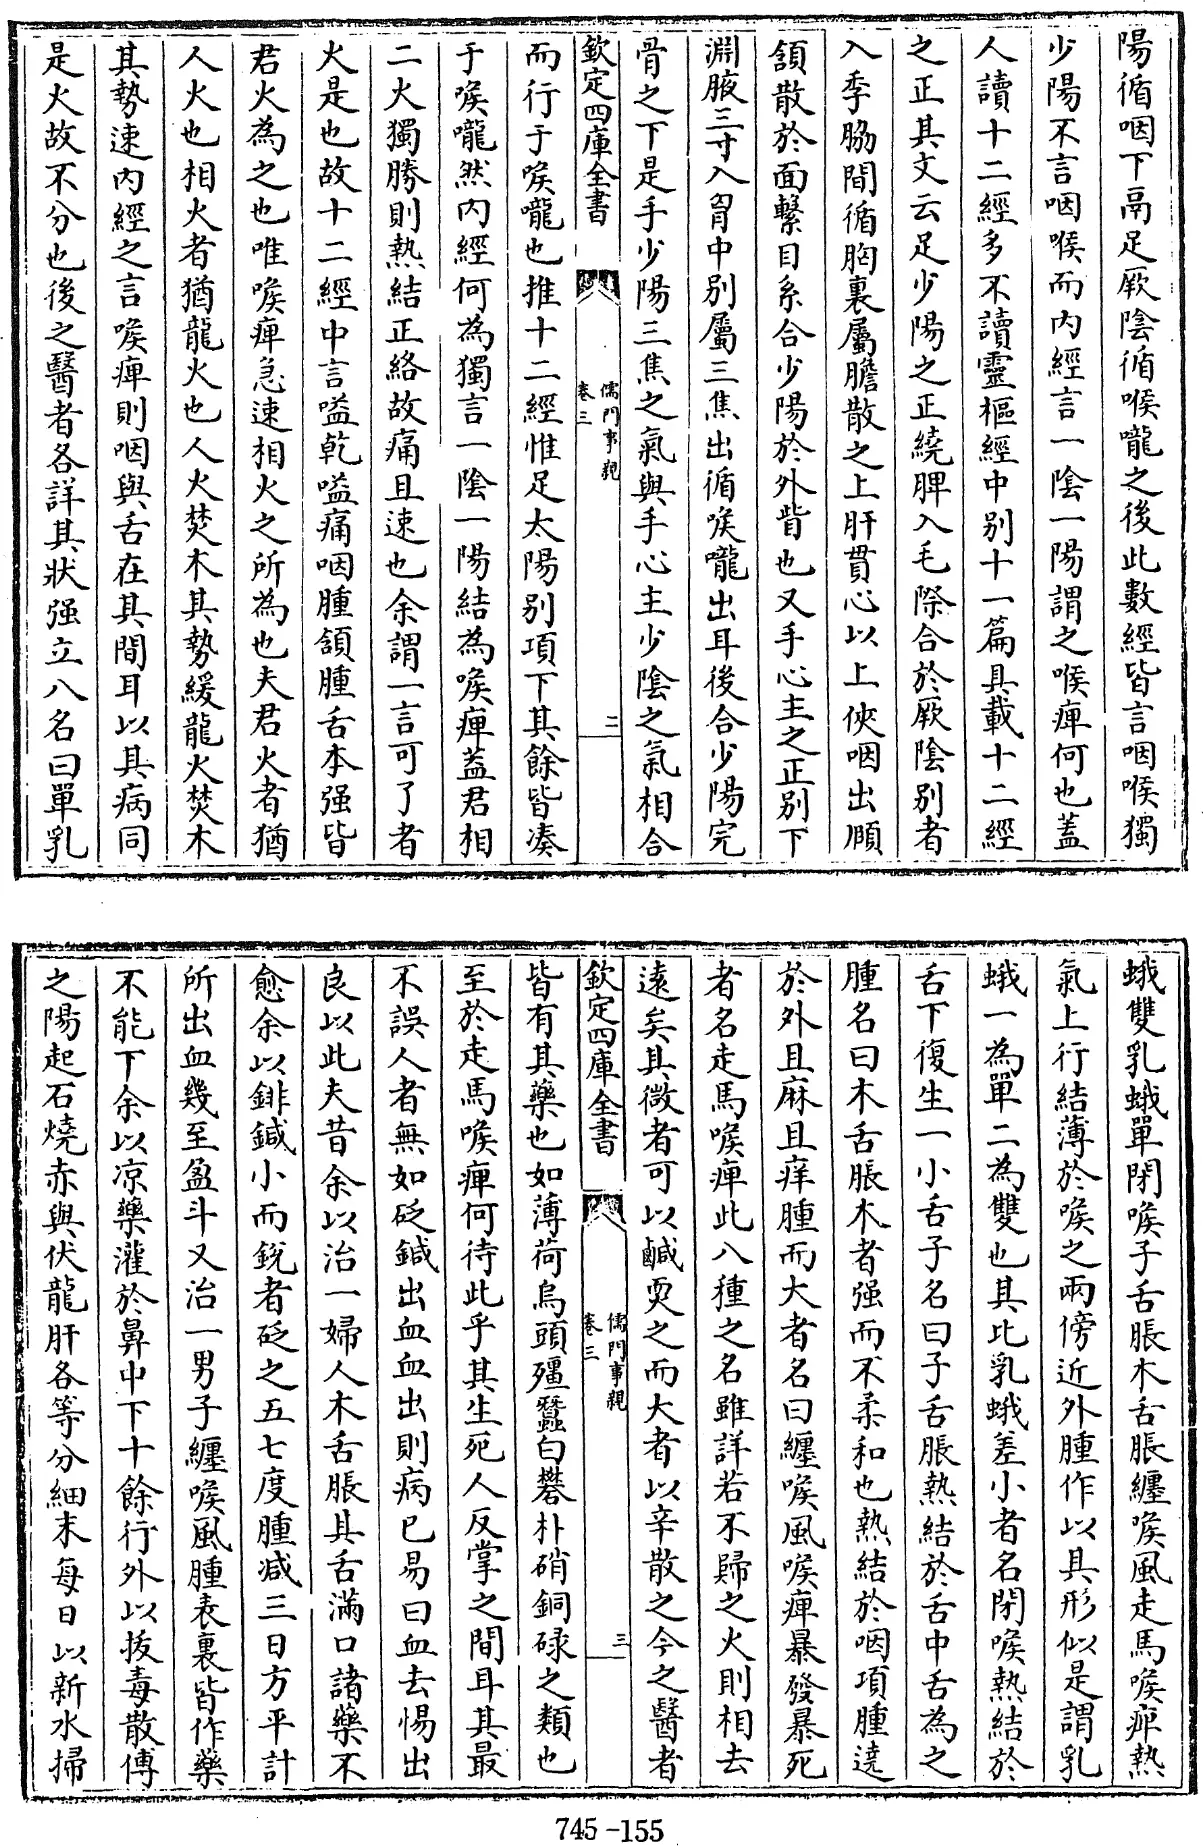 陽循咽下鬲足厥陰循喉嚨之後此數經皆言咽喉獨
少陽不言咽喉而内經言一陰一陽謂之喉痺何也蓋
人讀十二經多不讀靈樞經中别十一篇具載十二經
之正其文云足少陽之正繞脾入毛際合於厥陰别者
入季脇間循胸裏屬膽散之上肝貫心以上俠咽出頤
頷散於面繫目系合少陽於外眥也又手心主之正别下
淵腋三寸入胷中别屬三焦出循喉嚨出耳後合少陽完
骨之下是手少陽三焦之氣與手心主少陰之氣相合
欽定四庫全書
儒門事親
卷三
二
而行于喉嚨也推十二經惟足太陽别項下其餘皆湊
于喉嚨然内經何為獨言一陰一陽結為喉痺葢君相
二火獨勝則熱結正絡故痛且速也余謂一言可了者
火是也故十二經中言嗌乾嗌痛咽腫頷腫舌本强皆
君火為之也唯喉痺急速相火之所為也夫君火者猶
人火也相火者猶龍火也人火焚木其勢緩龍火焚木
其勢速内經之言喉痺則咽與舌在其間耳以其病同
是火故不分也後之醫者各詳其狀强立八名曰單乳
蛾雙乳蛾單閉喉子舌脹木舌脹纏喉風走馬喉痺熱
氣上行結薄於喉之兩傍近外腫作以其形似是謂乳
蛾一為單二為雙也其比乳蛾差小者名閉喉熱結於
舌下復生一小舌子名曰子舌脹熱結於舌中舌為之
腫名曰木舌脹木者强而不柔和也熱結於咽項腫遶
於外且麻且痒腫而大者名曰纏喉風喉痺暴發暴死
者名走馬喉痺此八種之名雖詳若不歸之火則相去
遠矣其微者可以鹹耎之而大者以辛散之今之醫者
欽定四庫全書
儒門事親
卷三
三
皆有其藥也如薄荷烏頭殭蠶白礬朴硝銅碌之類也
至於走馬喉痺何待此乎其生死人反掌之間耳其最
不誤人者無如砭鍼出血血出則病已易曰血去惕出
良以此夫昔余以治一婦人木舌脹其舌滿口諸藥不
愈余以鈹鍼小而鋭者砭之五七度腫减三日方平計
所出血幾至盈斗又治一男子纏喉風腫表裏皆作藥
不能下余以凉藥灌於鼻中下十餘行外以拔毒散傅
之陽起石燒赤與伏龍肝各等分細末每日以新水掃
745-155